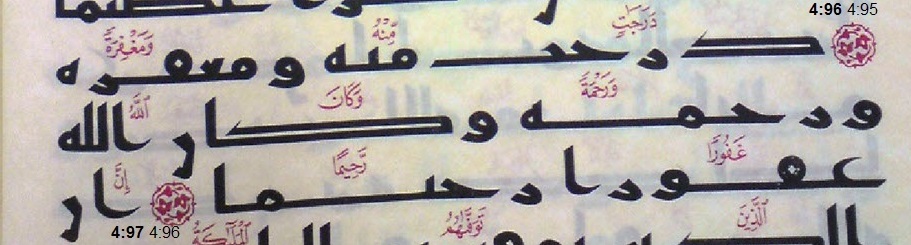 4:96 4:95
دَرَجَٰتٍ مِّنْهُ وَمَغْفِرَةً
درجت منه و مغفره
وَرَحْمَةً وَكَانَ اللَّهُ
و رحمه و كان الله
غَفُورًا رَّحِيمًا إِنَّ
غفورا رحيما ان
4:97 4:96
الَّذِينَ تَوَفَّىٰهُمُ الْمَلَٰٓئِكَةُ